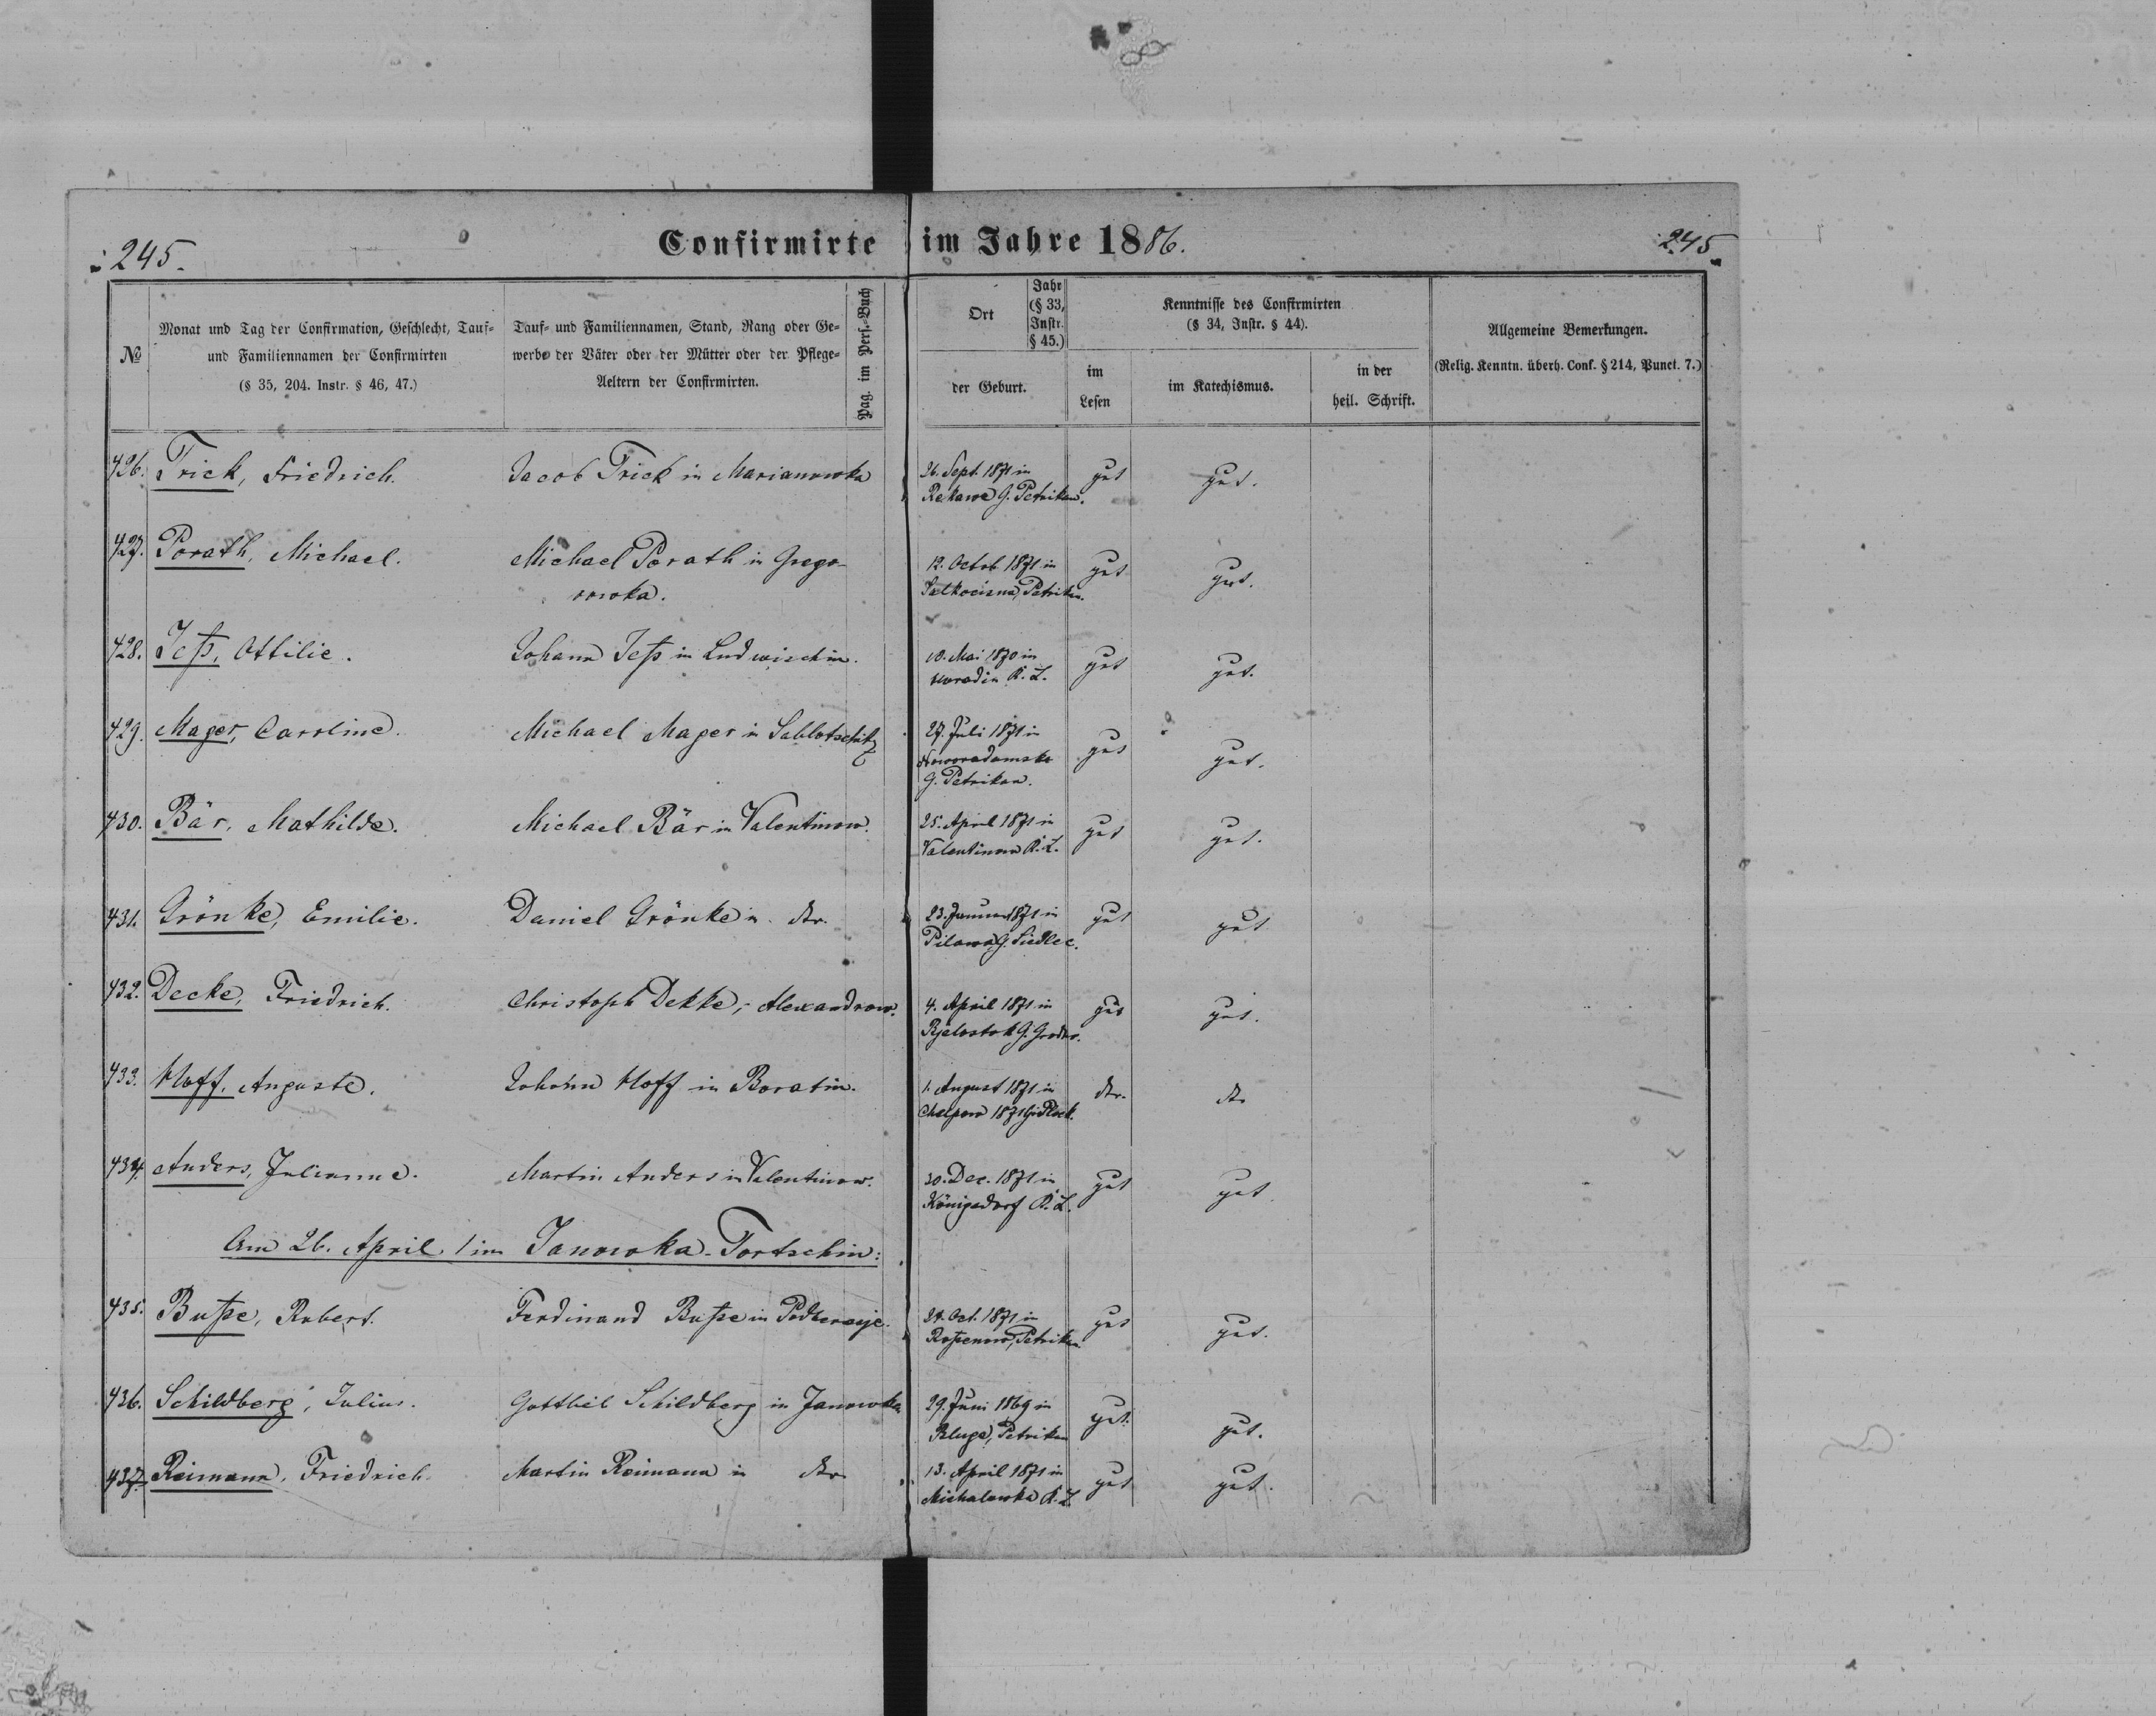 245.
Confirmirte im Jahre 1886.
245.
№
Monat und Tag der Confirmation, Geschlecht, Tauf-
und Familiennamen der Confirmirten
(§ 35, 204. Instr. § 46, 47.)
Tauf- und Familiennamen, Stand, Rang oder Ge-
werbe der Väter oder der Mütter oder der Pflege-
Aeltern der Confirmirten.
Pag. im Pers.-Buch
Ort
Jahr
(§ 33,
Instr.
§ 45.)
der Geburt.
Kenntnisse des Confirmirten
(§ 34, Instr. § 44).
im
Lesen
im Katechismus.
in der
heil. Schrift.
Allgemeine Bemerkungen.
(Relig. Kenntn. überh. Conf. § 214, Punct. 7.)
426. Trick, Friedrich. Jacob Trick in Marianowka 26. Sept. 1871 in gut gut.
Rekawe G. Petrikau.
427. Porath, Michael. Michael Porath in Grego- 12. Octob 1871 in gut gut.
rowka. Petrikau.
428. Jeß, Ottilie. Johann Jeß in Ludwischin. 10. Mai 1870 in gut gut.
Horodin K. L.
429. Mager, Caroline. Michael Mager in Sablotschitz 27. Juli 1871 in gut gut.
Noworadomsko
G. Petrikau.
430. Bär, Mathilde. Michael Bär in Valentinow. 25. April 1871 in gut gut.
Valentinow K. L.
431. Grönke, Emilie. Daniel Grönke in dto. 23. Januar 1871 in gut gut
Pilawa G. Siedlec.
432. Decke, Friedrich. Christoph Dekke, Alexandrow. 4. April 1871 in gut gut.
Bjelostok G. Grodno.
433. Hoff, Auguste. Johann Hoff in Boratin. 1. August 1871 in dto. dto
1871 G. Plock.
434. Anders, Julianne. Martin Anders in Valentinow. 30. Dec. 1871 in gut gut
Königsdorf K. L.
Am 26. April / im Janowka-Tortschin:
435. Buße, Robert. Ferdinand Buße in 24. Oct. 1871 in gut gut.
Petrikau
436. Schildberg, Julius. Gottlieb Schildberg in Janowka 29. Juni 1869 in gut. gut.
Petrikau
437. Reimann, Friedrich. Martin Reimann in dto 13. April 1871 in gut gut.
Michalowka K. L.